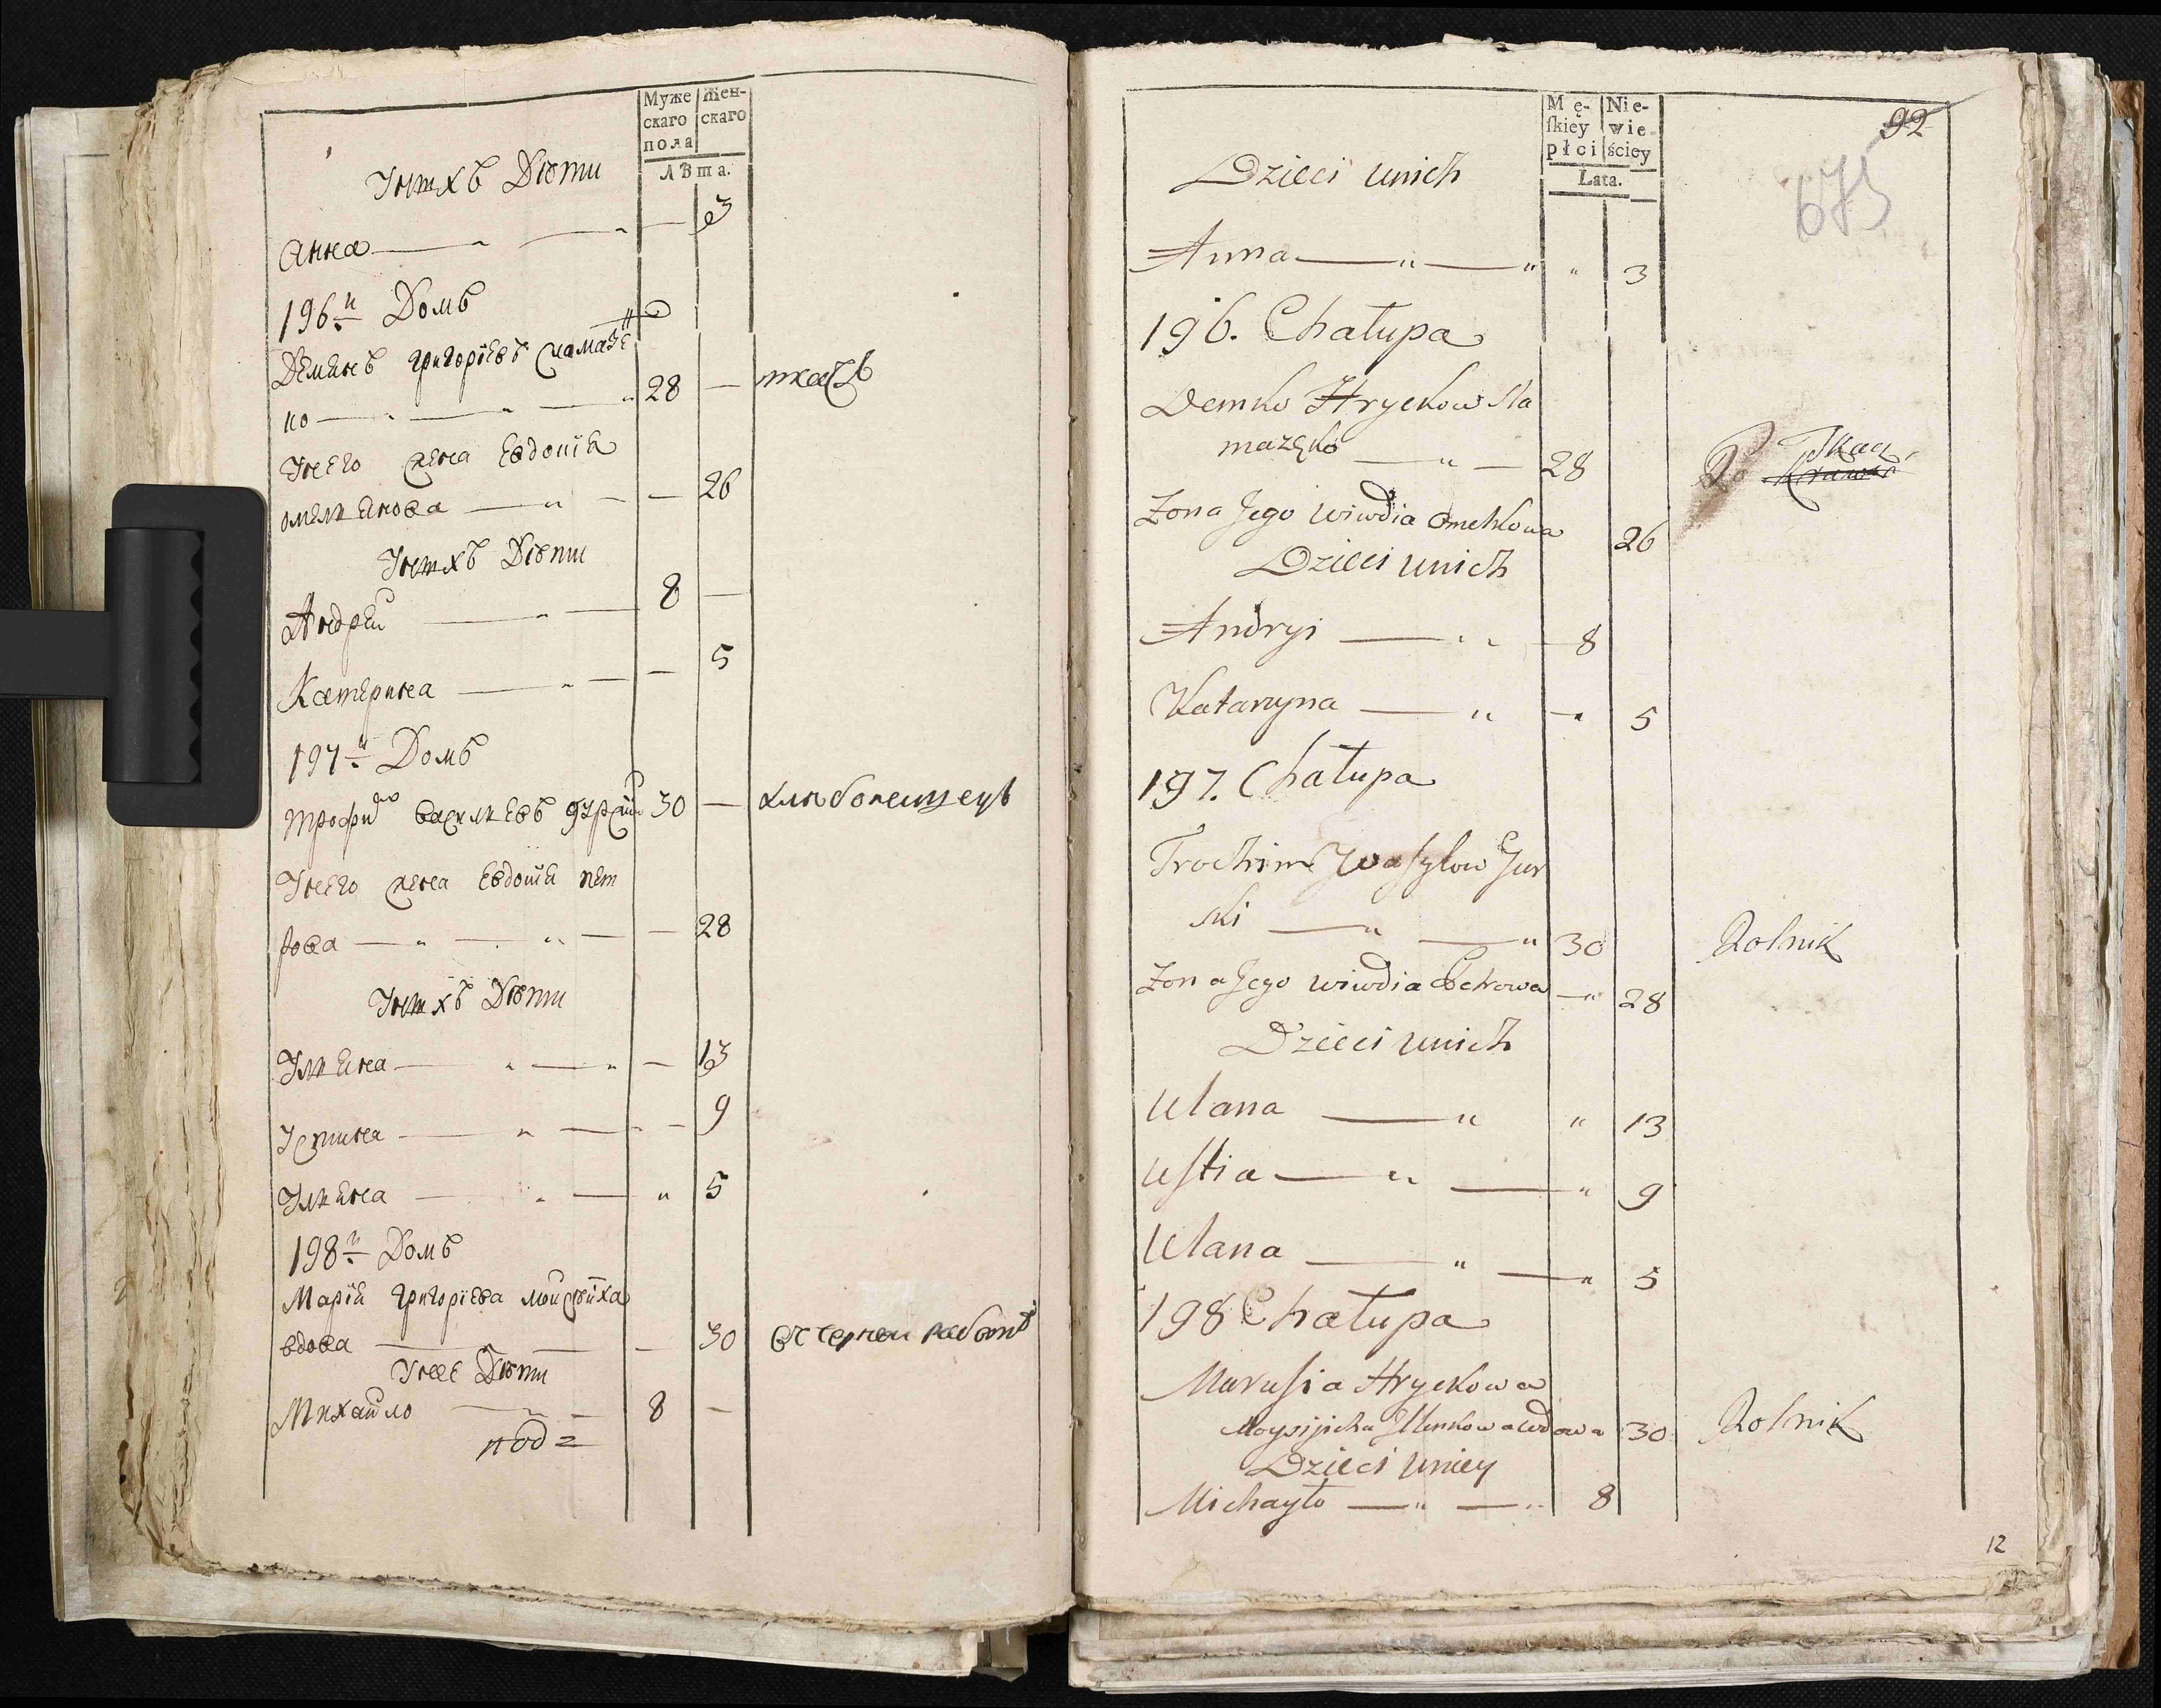 Муже Жен-
скаго скаго
пола
Лѣта.
Унихъ Дѣти
Анна 3
196й Домъ
Демянъ Григорїевъ Сламазе
но 28 — ткачъ
Унего жена Евдокїя
омельянова — 26
Унихъ Дѣти
Андрей 8 —
Катерина — 5
197й Домъ
Трофимъ Васильевъ 30 — хлебопашецъ
Унего жена Евдокїя пет
рова — 28
Унихъ Дѣти
Ульяна — 13
Устина — 9
Ульяна " 5
198й Домъ
Марїя Григорїева мойсїиха
вдова — 30 в черной работѣ
Унее Дѣти
Михайло 8 —
под
Mę- Nie-
ſkiey wie-
płci ściey
Lata.
92
675
Dzieci unich
Anna — " — " " 3
196. Chałupa
Demko Hryckow Sła
mazęko — " — 28 Tkacz
Zona Jego Wiwdia Omelkowa 26
Dzieci unich
Andryi — 8
Kataryna — " — " 5
197. Chałupa
Trochim Waſylow Gur
ski — " — " 30 Rolnik
Zona Jego Wiwdia Petrowa — " 28
Dzieci unich
Ulana — " " 13
Uſtia — " — " 9
Ulana — " — " 5
198 Chałupa
Maruſia Hryckowa
Moysijicha wdowa 30 Rolnik
Dzieci uniey
Michayło — " — " 8
12